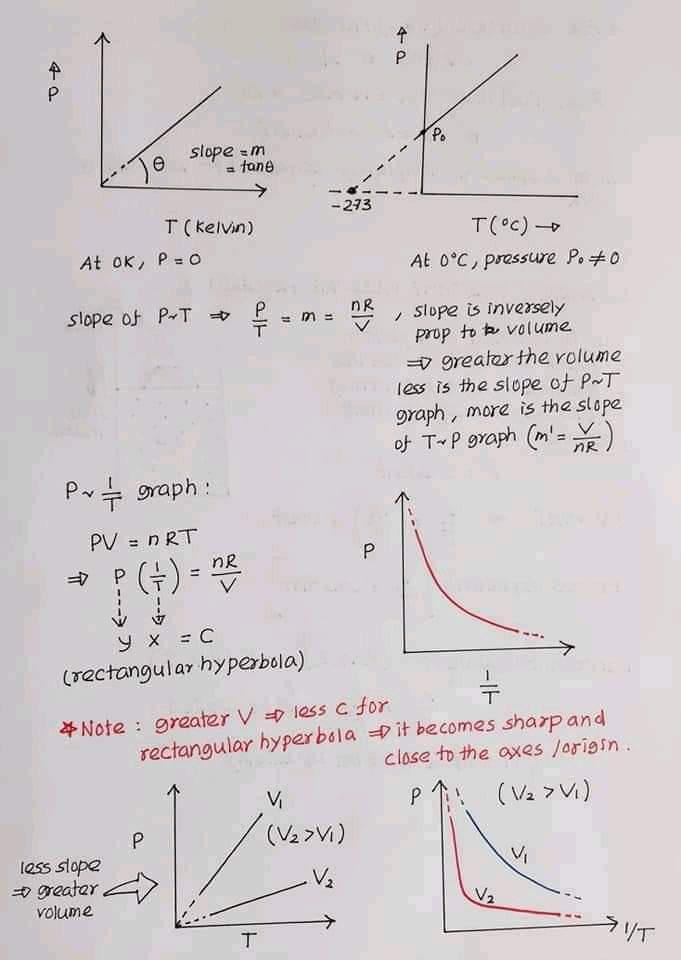 ↑
P
θ
slope = m
= tanθ
T (Kelvin)
At 0K, P = 0
↑
P
P₀
-273
T(°C) →
At 0°C, pressure P₀ ≠ 0
slope of P~T ⇒ P/T = m = nR/V , slope is inversely
prop to volume
⇒ greater the volume
less is the slope of P~T
graph, more is the slope
of T~P graph (m' = V/nR)
P~ 1/T graph :
PV = nRT
⇒ P (1/T) = nR/V
y x = C
(rectangular hyperbola)
P
1/T
*Note : greater V ⇒ less c for
rectangular hyperbola ⇒ it becomes sharp and
close to the axes /origin.
P
V₁
(V₂>V₁)
V₂
T
less slope
⇒ greater
volume
P
(V₂ > V₁)
V₁
V₂
1/T